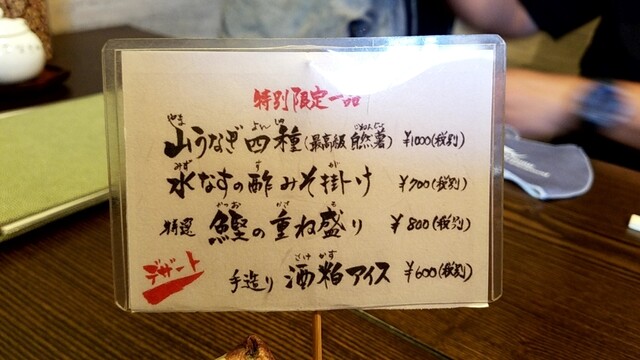 特別限定一品
山うなぎ四種(最高級 自然薯) ¥1000(税別)
水なすの酢みそ掛け ¥700(税別)
特選 鰹の重ね盛り ¥800(税別)
デザート 手造り 酒粕アイス ¥600(税別)